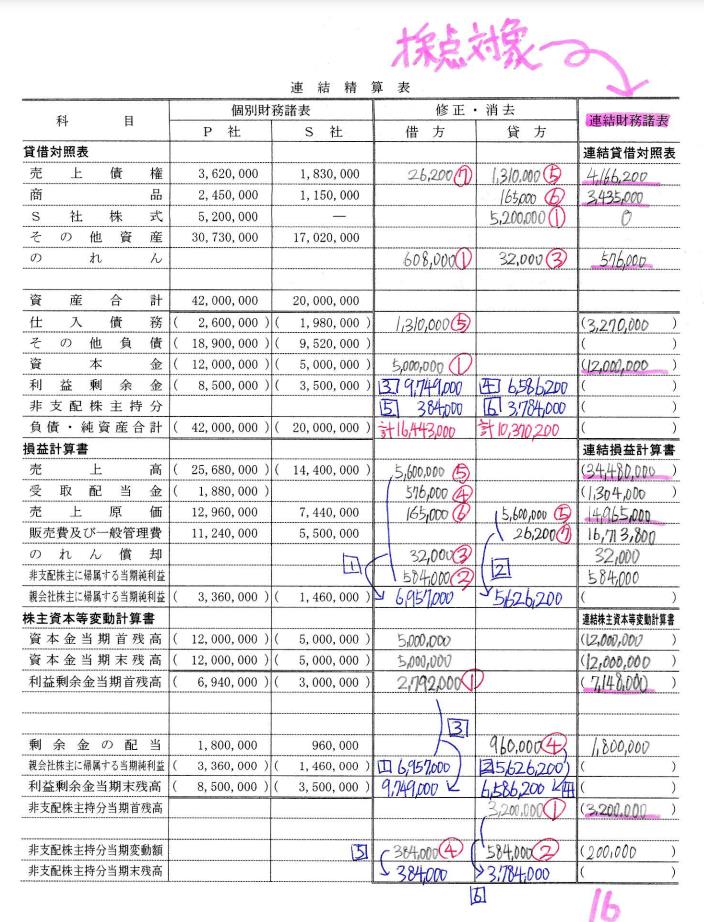 採点対象
連結精算表
科 目 個別財務諸表 修正・消去 連結財務諸表
P 社 S 社 借 方 貸 方
貸借対照表 連結貸借対照表
売上債権 3,620,000 1,830,000 26,200⑦ 1,310,000⑤ 4,166,200
商品 2,450,000 1,150,000 165,000⑥ 3,435,000
S社株式 5,200,000 ― 5,200,000① 0
その他資産 30,730,000 17,020,000
のれん 608,000① 32,000③ 576,000
資産合計 42,000,000 20,000,000
仕入債務 ( 2,600,000 ) ( 1,980,000 ) 1,310,000⑤ (3,270,000 )
その他負債 ( 18,900,000 ) ( 9,520,000 ) ( )
資本金 ( 12,000,000 ) ( 5,000,000 ) 5,000,000① (12,000,000 )
利益剰余金 ( 8,500,000 ) ( 3,500,000 ) 3 9,749,000 4 6,586,200 ( )
非支配株主持分 5 384,000 6 3,784,000 ( )
負債・純資産合計 ( 42,000,000 ) ( 20,000,000 ) 計16,443,000 計10,370,200 ( )
損益計算書 連結損益計算書
売上高 ( 25,680,000 ) ( 14,400,000 ) 5,600,000⑤ (34,480,000 )
受取配当金 ( 1,880,000 ) 576,000④ (1,304,000 )
売上原価 12,960,000 7,440,000 165,000⑥ 5,600,000⑤ 14,965,000
販売費及び一般管理費 11,240,000 5,500,000 26,200⑦ 16,713,800
のれん償却 32,000③ 32,000
非支配株主に帰属する当期純利益 1 584,000② 2 584,000
親会社株主に帰属する当期純利益 ( 3,360,000 ) ( 1,460,000 ) 6,957,000 5,626,200 ( )
株主資本等変動計算書 連結株主資本等変動計算書
資本金当期首残高 ( 12,000,000 ) ( 5,000,000 ) 5,000,000 (12,000,000 )
資本金当期末残高 ( 12,000,000 ) ( 5,000,000 ) 5,000,000 (12,000,000 )
利益剰余金当期首残高 ( 6,940,000 ) ( 3,000,000 ) 2,792,000① (7,148,000 )
3
剰余金の配当 1,800,000 960,000 960,000④ 1,800,000
親会社株主に帰属する当期純利益 ( 3,360,000 ) ( 1,460,000 ) 1 6,957,000 2 5,626,200 ( )
利益剰余金当期末残高 ( 8,500,000 ) ( 3,500,000 ) 9,749,000 6,586,200 4 ( )
非支配株主持分当期首残高 3,200,000① (3,200,000 )
非支配株主持分当期変動額 5 384,000④ 584,000② (200,000 )
非支配株主持分当期末残高 384,000 3,784,000 ( )
6
16